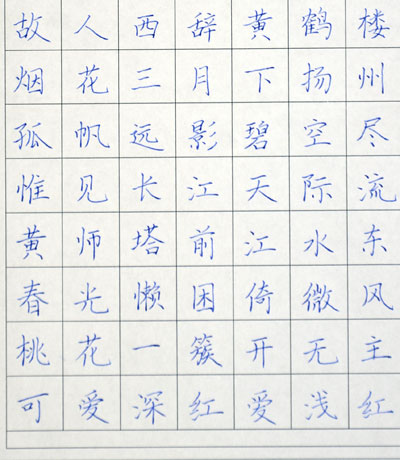 故人西辞黄鹤楼
烟花三月下扬州
孤帆远影碧空尽
惟见长江天际流
黄师塔前江水东
春光懒困倚微风
桃花一簇开无主
可爱深红爱浅红